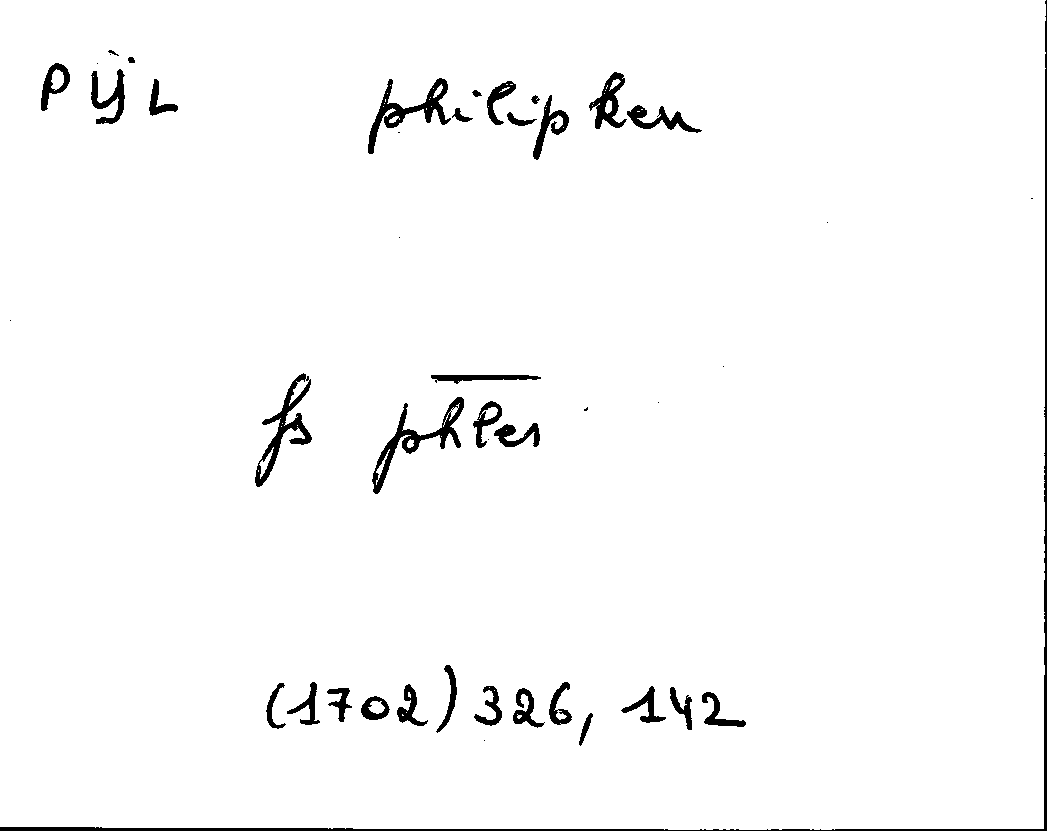 PŸL philipken
fs phles
(1702) 326, 142